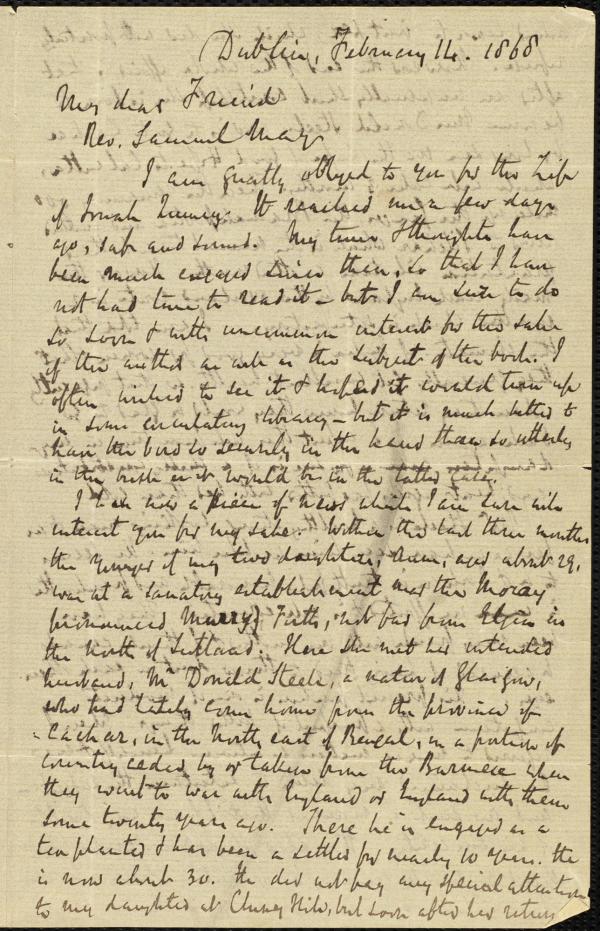 Dublin, February 14. 1868
My dear Friend
Rev. Samuel May,
I am greatly obliged to you for the Life
of Josiah Quincy. It reached me a few days
ago, safe and sound. My time & thoughts have
been much engaged since then, so that I have
not had time to read it – but I am sure to do
so soon & with uncommon interest for the sake
of the author as well as the subject of the book. I
often wished to see it & hoped it would turn up
in some circulating library – but it is much better to
have the bird so securely in the hand than so utterly
in the bush as it would be in the latter case.
I have now a piece of news which I am sure will
interest you for my sake. Within the last three months
the younger of my two daughters, Anne, aged about 29,
was at a sanatory establishment near the Moray
pronounced Murry) Firth, not far from Elgin in
the north of Scotland. Here she met her intended
husband, Mr Donald Steele, a native of Glasgow,
who had lately come home from the province of
Cachar, in the North east of Bengal, in a portion of
country ceded by or taken from the Burmese when
they went to war with England or England with them
some twenty years ago. There he is engaged as a
tea planter & has been a settler for nearly 10 years. He
is now about 30. He did not pay any special attention
to my daughter at Cluny Hill, but soon after her return